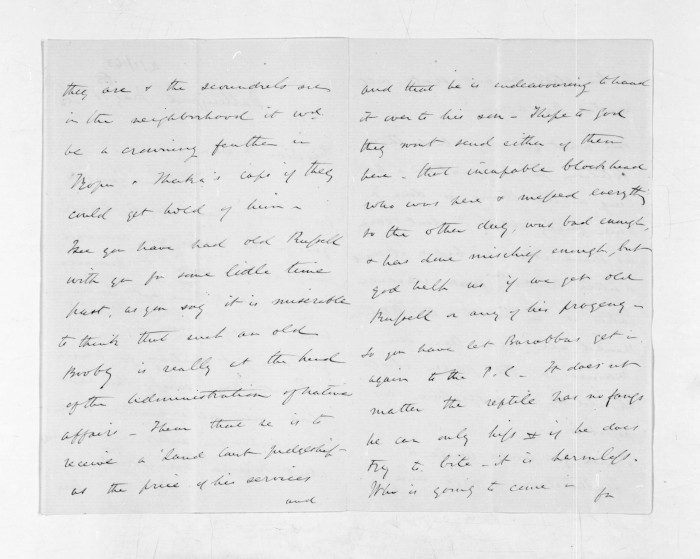 they are & the scoundrels are
in the neighborhood it wd
be a crowning feather in
Ropu & Thaka's caps if they
could get hold of him –
I see you have had old Russell
with you for some little time
past, as you say it is miserable
to think that such an old
Booby is really at the head
of the administration of native
affairs – I hear that he is to
receive a Land Court Judgeship –
as the price of his services
and
and that he is endeavouring to hand
it over to his son – I hope to god
they wont send either of them
here – that incapable blockhead
who was here & messed everything
so the other day, was bad enough,
& has done mischief enough, but
god help us if we get old
Russell or any of his progeny –
So you have let Barabbas get in
again to the P.C. – It does not
matter the reptile has no fangs
he can only hiss & if he does
try to bite – it is harmless.
Who is going to come in
for